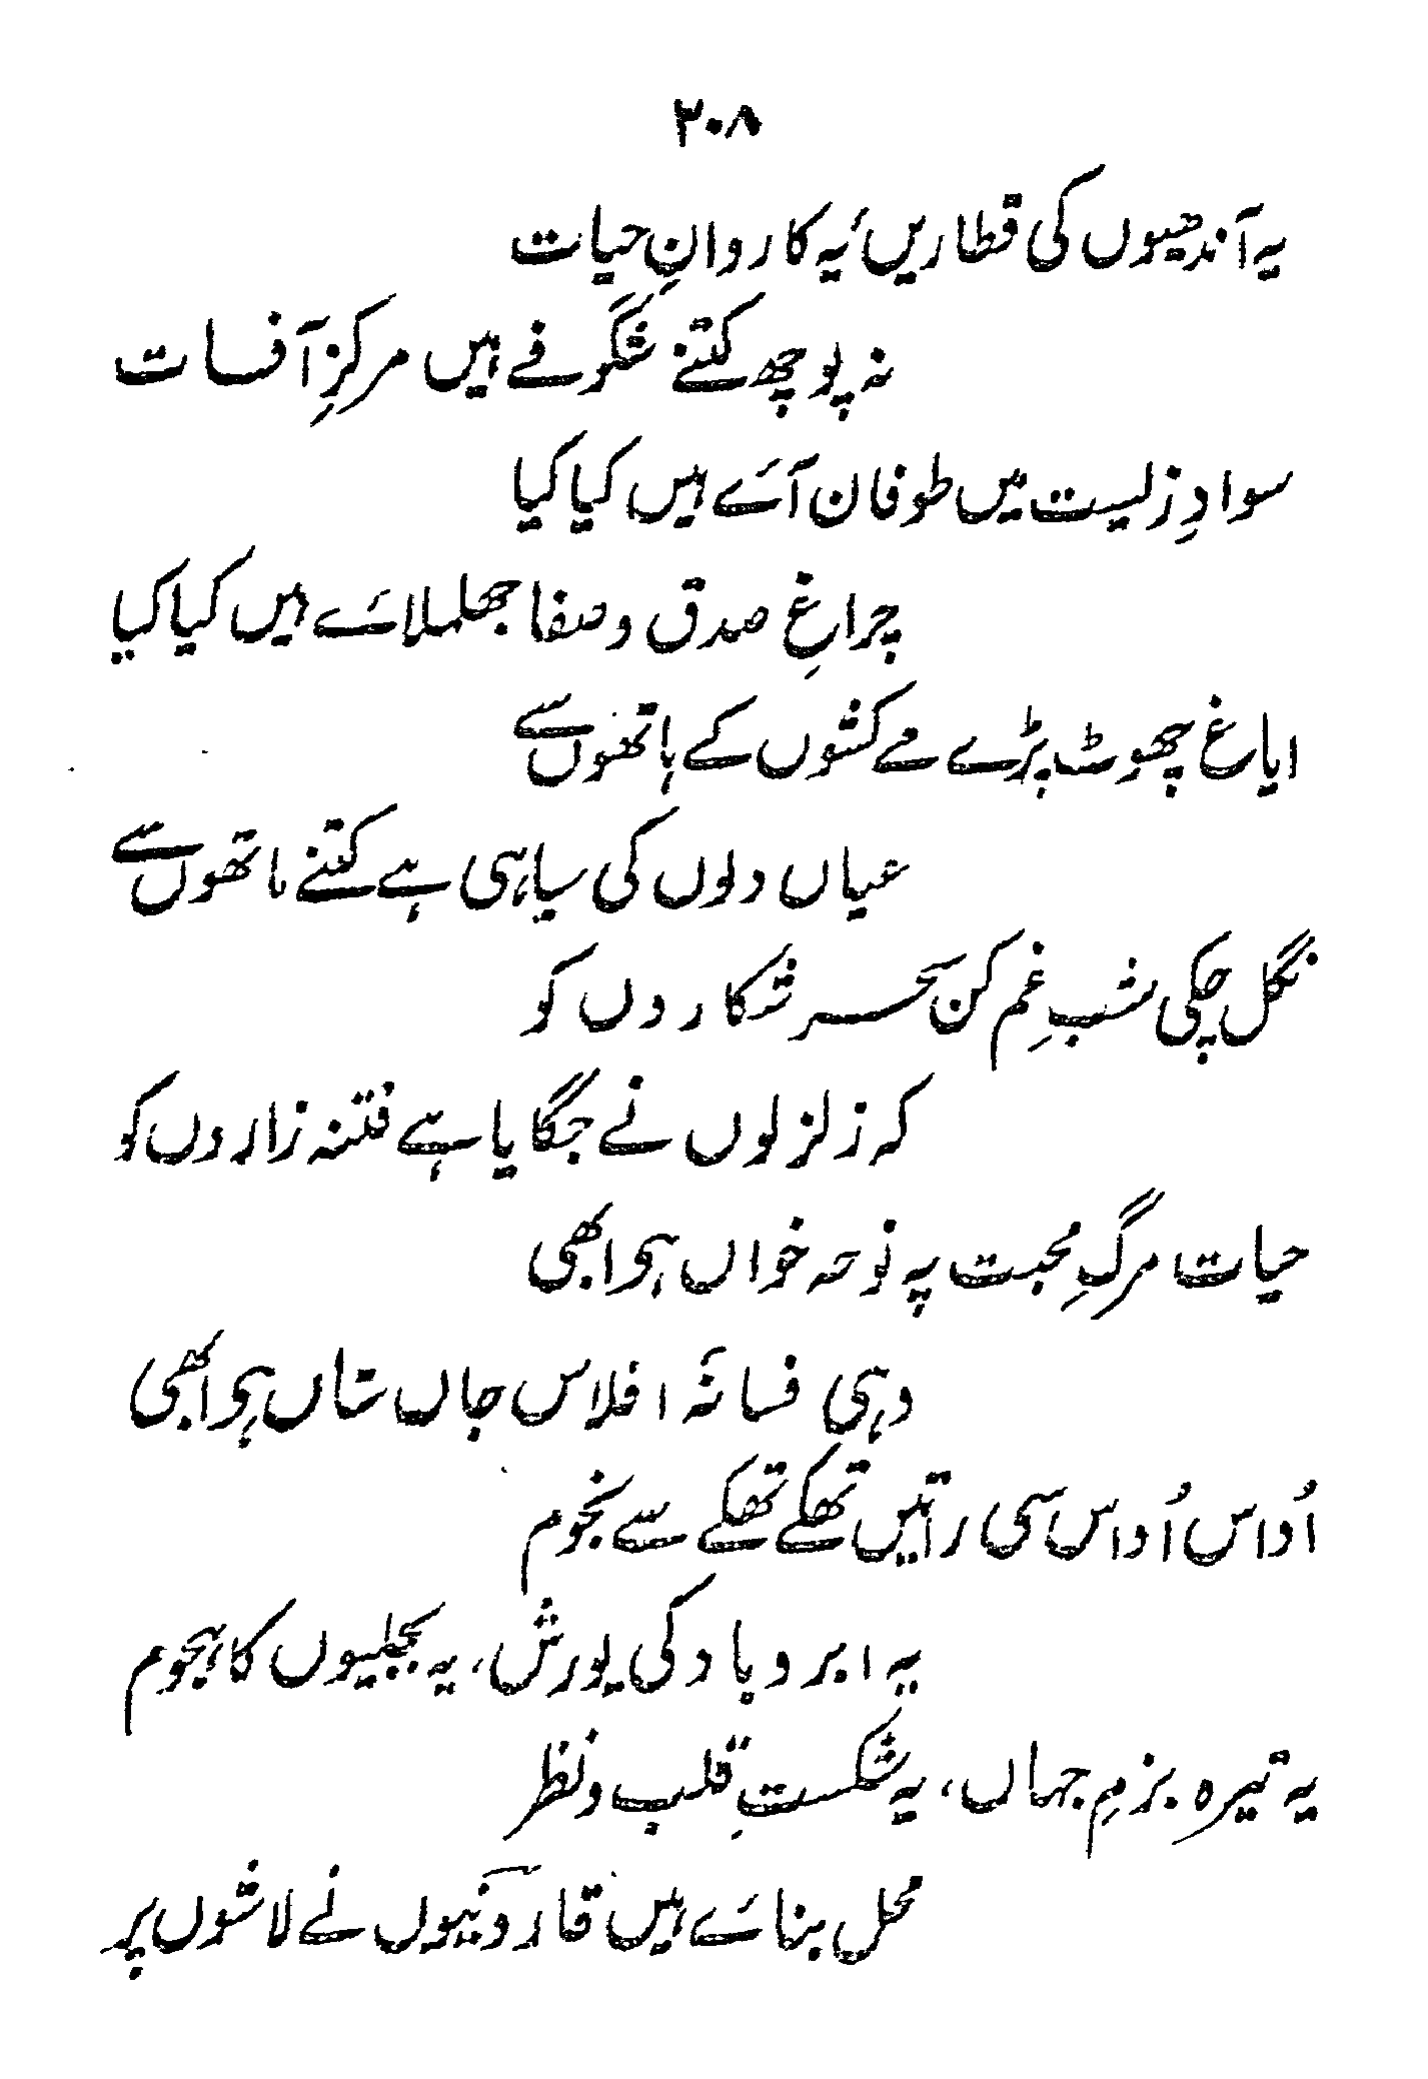 ۳۰۸
یہ آندھیوں کی قطاریں، یہ کاروانِ حیات
نہ پوچھ کتنے شگوفے ہیں مرکزِ آفات
سوادِ زیست میں طوفان آئے ہیں کیا کیا
چراغِ صدق و صفا جھلملائے ہیں کیا کیا
ایاغ چھوٹ پڑے مے کشوں کے ہاتھوں سے
عیاں دلوں کی سیاہی ہے کتنے ماتھوں سے
نگل چکی شبِ غم کن سحر شکاروں کو
کہ زلزلوں نے جگایا ہے فتنہ زاروں کو
حیات مرگِ محبت پہ نوحہ خواں ہی ابھی
وہی فسانۂ افلاس جاں ستاں ہی ابھی
اُداس اُداس سی راتیں تھکے تھکے سے نجوم
یہ ابر و باد کی یورش، یہ بجلیوں کا ہجوم
یہ تیرہ بزمِ جہاں، یہ شکستِ قلب و نظر
محل بنائے ہیں قارونیوں نے لاشوں پر